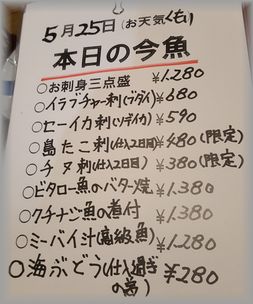 5月25日(お天気くもり)
本日の今魚
○お刺身三点盛 ¥1.280
○イラブチャー刺(ブダイ) ¥680
○セーイカ刺(ソデイカ) ¥590
○島たこ刺(仕入2日目)¥480(限定)
○チヌ刺(仕入2日目) ¥380(限定)
○ビタロー魚のバター焼 ¥1.380
○クチナジ魚の煮付 ¥1.380
○ミーバイ汁(高級魚) ¥1.280
○海ぶどう(仕入過ぎの為) ¥280